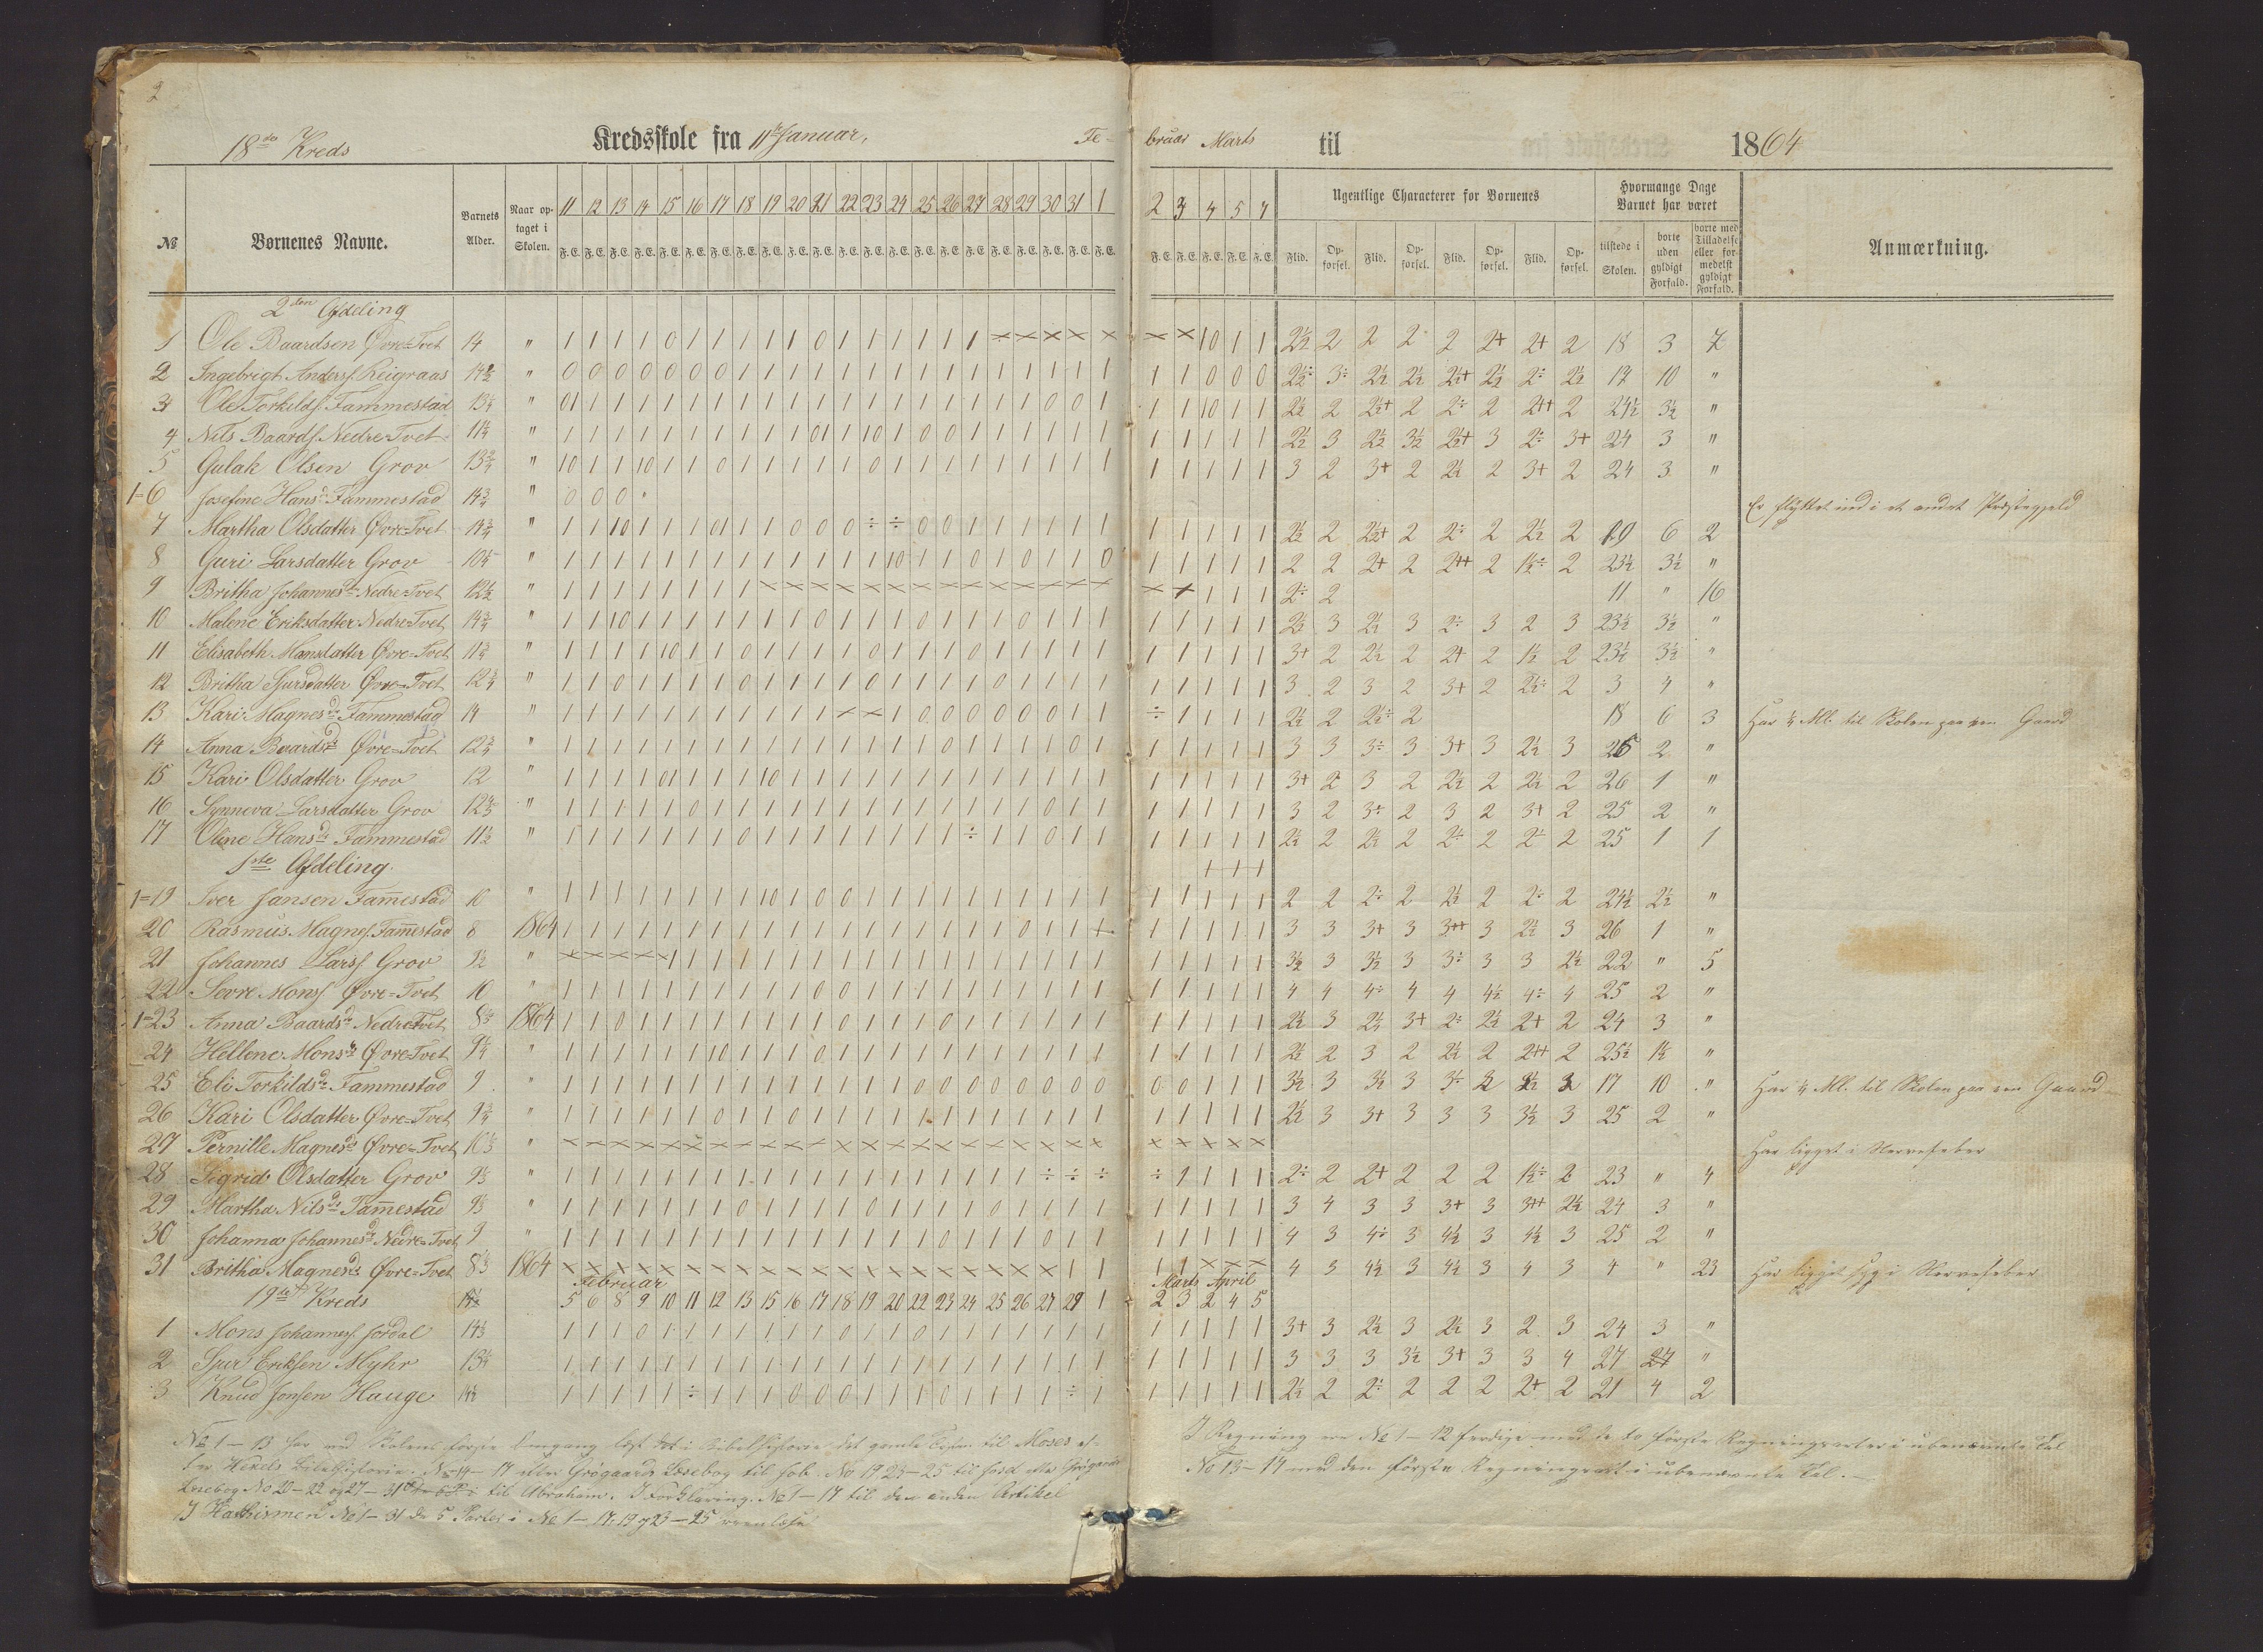 2
18de Kreds Kredsskole fra 11te Januar, Fe- bruar Marts til 1864
№ Børnenes Navne. Barnets Alder. Naar optaget i Skolen. 11 12 13 14 15 16 17 18 19 20 21 22 23 24 25 26 27 28 29 30 31 1 2 3 4 5 7 Ugentlige Characterer for Børnenes Hvormange Dage Barnet har været Anmærkning.
F. E. Flid. Opførsel. Flid. Opførsel. Flid. Opførsel. Flid. Opførsel. tilstede i Skolen. borte uden gyldigt Forfald. borte med Tilladelse eller formedelst gyldigt Forfald.
2den Afdeling
1 Ole Baardsen Øvre=Tvet 14 " 1 1 1 1 0 1 1 1 1 1 0 1 1 1 1 1 1 × × × × × × × 10 1 1 2½ 2 2 2 2 2+ 2+ 2 18 3 7
2 Ingebrigt Anderss. Reigraas 14½ " 0 0 0 0 0 0 0 1 1 1 1 1 1 1 1 1 1 1 1 1 1 1 1 1 0 0 0 2½÷ 3÷ 2½ 2½ 2½+ 2½ 2÷ 2½ 17 10 "
3 Ole Torkilds. Fammestad 13¼ " 01 1 1 1 1 1 1 1 1 1 1 1 1 1 1 1 1 1 1 0 0 1 1 1 10 1 1 2½ 2 2½+ 2 2÷ 2 2++ 2 24½ 3½ "
4 Nils Baards. Nedre=Tvet 11¼ " 1 1 1 1 1 1 1 1 1 1 01 1 10 1 0 0 1 1 1 1 1 1 1 1 1 1 1 2½ 3 2½ 3½ 2½+ 3 2÷ 3+ 24 3 "
5 Gulak Olsen Grov 13¾ " 10 1 1 10 1 1 0 1 1 1 1 1 0 1 1 1 1 1 1 1 1 1 1 1 1 1 1 3 2 3+ 2 2½ 2 3+ 2 24 3 "
1=6 Josefine Hansd. Fammestad 14¾ " 0 0 0 Er flyttet ind i et andet Præstegjeld
7 Martha Olsdatter Øvre=Tvet 14¾ " 1 1 10 1 1 1 01 1 1 0 0 0 ÷ ÷ 0 0 1 1 1 1 1 1 1 1 1 1 1 2½ 2 2½+ 2 2÷ 2 2½ 2 19 6 2
8 Guri Larsdatter Grov 10¼ " 1 1 1 1 1 1 1 1 1 1 1 1 1 10 1 1 0 1 0 1 1 0 1 1 1 1 1 2 2 2+ 2 2++ 2 1½÷ 2 23½ 3½ "
9 Britha Johannesdr Nedre=Tvet 12½ " 1 1 1 1 1 1 1 1 × × × × × × × × × × × × × × × × 1 1 1 2÷ 2 11 " 16
10 Malene Eriksdatter Nedre=Tvet 14¾ " 1 1 10 1 1 1 1 1 1 1 0 1 1 1 0 1 1 1 0 1 1 1 1 1 1 1 1 2½ 3 2½ 3 2÷ 3 2 3 23½ 3½ "
11 Elisabeth Monsdatter Øvre=Tvet 11¾ " 1 1 1 1 10 1 1 0 1 1 1 1 0 1 1 1 0 1 1 1 1 1 1 1 1 1 1 3+ 2 2½ 2 2+ 2 1½ 2 23½ 3½ "
12 Britha Sjursdatter Øvre=Tvet 12¾ " 1 1 0 1 1 1 1 0 1 1 1 1 0 1 1 1 1 0 1 1 1 1 1 1 1 1 1 3 2 3 2 3+ 2 2½÷ 2 3 4 "
13 Kari Magnesdr Fammestad 14 " 1 1 1 1 1 1 1 1 1 1 1 × × 1 0 0 0 0 0 0 1 1 ÷ 1 1 1 1 2½ 2 2½÷ 2 18 6 3 Har ¼ Ml. til Skolen paa en Gaard
14 Anna Baardsdr Øvre=Tvet 12¾ " 1 1 1 1 1 1 1 1 1 1 1 1 1 1 1 0 1 1 1 1 0 1 1 1 1 1 1 3 3 3÷ 3 3+ 3 2½ 3 25 2 "
15 Kari Olsdatter Grov 12 " 1 1 1 1 01 1 1 1 10 1 1 1 1 1 1 1 1 1 1 1 1 1 1 1 1 1 1 3+ 2 3 2 2½ 2 2½ 2 26 1 "
16 Synneva Larsdatter Grov 12⅔ " 1 1 1 1 1 0 1 1 1 1 1 1 1 1 1 1 1 1 1 0 1 1 1 1 1 1 1 3 2 3÷ 2 3 2 3+ 2 25 2 "
17 Oline Hansdr Fammestad 11½ " 1 1 1 1 1 1 1 0 1 1 1 1 1 1 1 1 ÷ 1 1 0 1 1 1 1 1 1 1 2½ 2 2½ 2 2÷ 2 2÷ 2 25 1 1
1ste Afdeling. 1 1 1
1=19 Iver Jansen Fam̅estad 10 " 1 1 1 1 1 1 1 1 10 1 0 0 1 1 1 1 1 1 1 1 1 1 1 1 1 1 1 2 2 2÷ 2 2½ 2 2÷ 2 24½ 2½ "
20 Rasmus Magnes. Fam̅estad 8 1864 1 1 1 1 1 1 1 1 1 1 1 1 1 1 1 1 1 1 0 1 1 1 1 1 1 1 1 3 3 3+ 3 3++ 3 2½ 3 26 1 "
21 Johannes Larss. Grov 9½ " × × × × × 1 1 1 1 1 1 1 1 1 1 1 1 1 1 1 1 1 1 1 1 1 1 3½ 3 3½ 3 3÷ 3 3 2½ 22 " 5
22 Sevre Monss. Øvre=Tvet 10 " 1 1 1 1 1 1 1 1 1 1 0 0 1 1 1 1 1 1 1 1 1 1 1 1 1 1 1 4 4 4÷ 4 4 4½ 4÷ 4 25 2 "
1=23 Anna Baardsdr Nedre=Tvet 8⅓ 1864 1 1 0 1 1 1 1 1 1 1 1 0 1 1 1 0 1 1 1 1 1 1 1 1 1 1 1 2½ 3 2½ 3+ 2÷ 2½ 2+ 2 24 3 "
24 Hellene Monsdr Øvre=Tvet 9¼ " 1 1 1 1 1 1 10 1 1 1 0 1 1 1 1 1 1 1 1 1 1 1 1 1 1 1 1 2½ 2 3 2 2½ 2 2++ 2 25½ 1½ "
25 Eli Torkildsdr Fammestad 9 " 1 1 1 1 1 1 1 1 1 1 1 1 1 1 0 0 0 0 0 0 0 0 0 0 1 1 1 3½ 3 3½ 3 17 10 " Har ¼ Ml. til Skolen paa en Gaard
26 Kari Olsdatter Øvre=Tvet 9¾ " 1 1 1 1 1 1 0 1 1 0 1 1 1 1 1 1 1 1 1 1 1 1 1 1 1 1 1 2½ 3 3+ 3 3 3 3½ 3 25 2 "
27 Pernille Magnesdr Øvre=Tvet 10⅓ " × × × × × × × × × × × × × × × × × × × × × × × × × × × Har ligget i Nervefeber
28 Sigrid Olsdatter Grov 9⅓ " 1 1 1 1 1 1 1 1 1 1 1 1 1 1 1 1 1 1 1 ÷ ÷ ÷ ÷ 1 1 1 1 2÷ 2 2+ 2 2 2 1½÷ 2 23 " 4
29 Martha Nilsdr Fam̅estad 9⅓ " 1 1 1 1 1 1 1 0 1 1 1 1 0 1 1 1 1 0 1 1 1 1 1 1 1 1 1 3 4 3 3 3+ 3 3++ 2½ 24 3 "
30 Johanna Johannesdr Nedre=Tvet 9 " 1 1 1 1 1 1 1 1 1 1 1 1 1 1 1 0 1 1 1 0 1 1 1 1 1 1 1 4 3 4÷ 3 4½ 3 4½ 3 25 2 "
31 Britha Magnesdr Øvre=Tvet 8⅓ 1864 × × × × × × × × × × × × × × × × × × × × 1 1 1 1 × × × 4 3 4½ 3 4½ 3 4 3 4 " 23 Har ligget syg i Nervefeber
Februar Marts April
19de Kreds 5 6 8 9 10 11 12 13 15 16 17 18 19 20 22 23 24 25 26 27 29 1 2 3 2 4 5
1 Mons Johanness. Jordal 14⅓ 1 1 1 0 1 1 1 1 1 1 1 0 1 1 0 1 1 1 1 1 1 1 1 1 1 1 1 3+ 3 2½ 3 2½ 3 2 3 24 3 "
2 Sjur Eriksen Myhr 13¼ 1 1 1 1 1 1 1 1 1 1 1 1 1 1 1 1 1 1 1 1 1 1 1 1 1 1 1 3 3 3 3½ 3+ 3 3 4 27 "
3 Knud Jonsen Hauge 14½ 1 1 1 1 1 ÷ 1 1 1 0 0 0 1 1 1 0 1 1 1 1 ÷ 1 1 1 1 1 1 2½ 2 2÷ 2 2 2 2+ 2 21 4 2
№ 1 – 13 har ved Skolens første Omgang læst i Bibelhistorie det gamle Testm. til Moses ef-
ter Bibelhistorie. № 14 – 17 efter Grøgaards Læsebog til Job. No 19 23 – 25 til Josef efter Grøgaards
Læsebog No 20 – 22 og 27 – 31 til Abraham. I Forklaring. № 1 – 17 til den anden Artikel
I Kathismen № 1 – 31 de 5 Parter i № 1 – 17, 19 og 23 – 25
I Regning ere № 1 – 12 færdige med de to første Regningsarter i ubenævnte Tal
No 13 – 17 med den første Regningsart i ubenævnte Tal. –